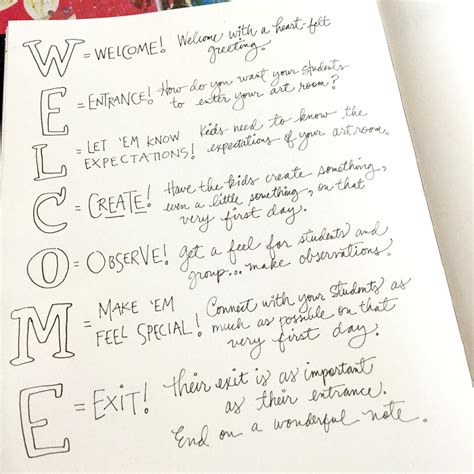 W = WELCOME! Welcome with a heart-felt
greeting.
E = ENTRANCE! How do you want your students
to enter your art room?
L = LET 'EM KNOW EXPECTATIONS! Kids need to know the
expectations of your art room.
C = CREATE! Have the kids create something,
even a little something, on that
very first day.
O = OBSERVE! get a feel for students and
group... make observations.
M = MAKE 'EM FEEL SPECIAL! Connect with your students as
much as possible on that
very first day.
E = EXIT! Their exit is as important
as their entrance.
End on a wonderful note.